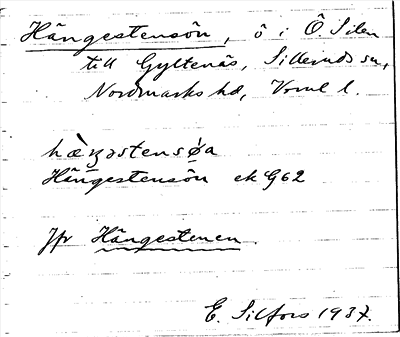 Hängestensön, ö i Ö Silen
till Gyltenäs, Silleruds sn,
Nordmarks hd, Vrml l.
hæ̀ŋəstensø̣a
Hängestensön ek G62
Jfr Hängestenen.
E. Silfors 1937.